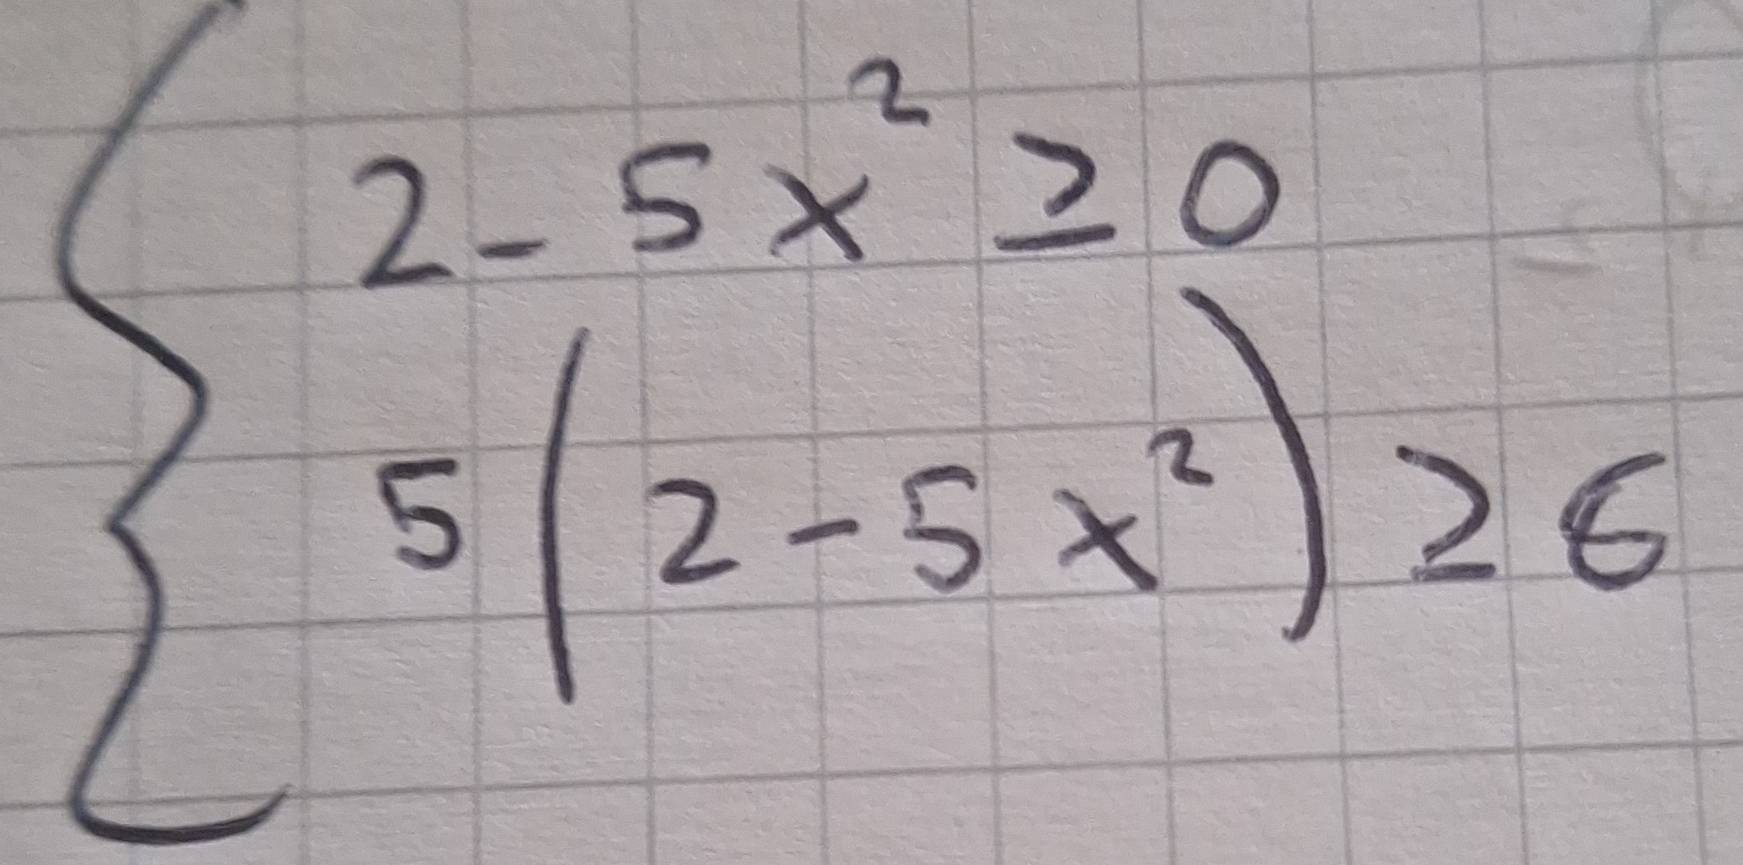 2 - 5x² ≥ 0
5(2 - 5x²) ≥ 6